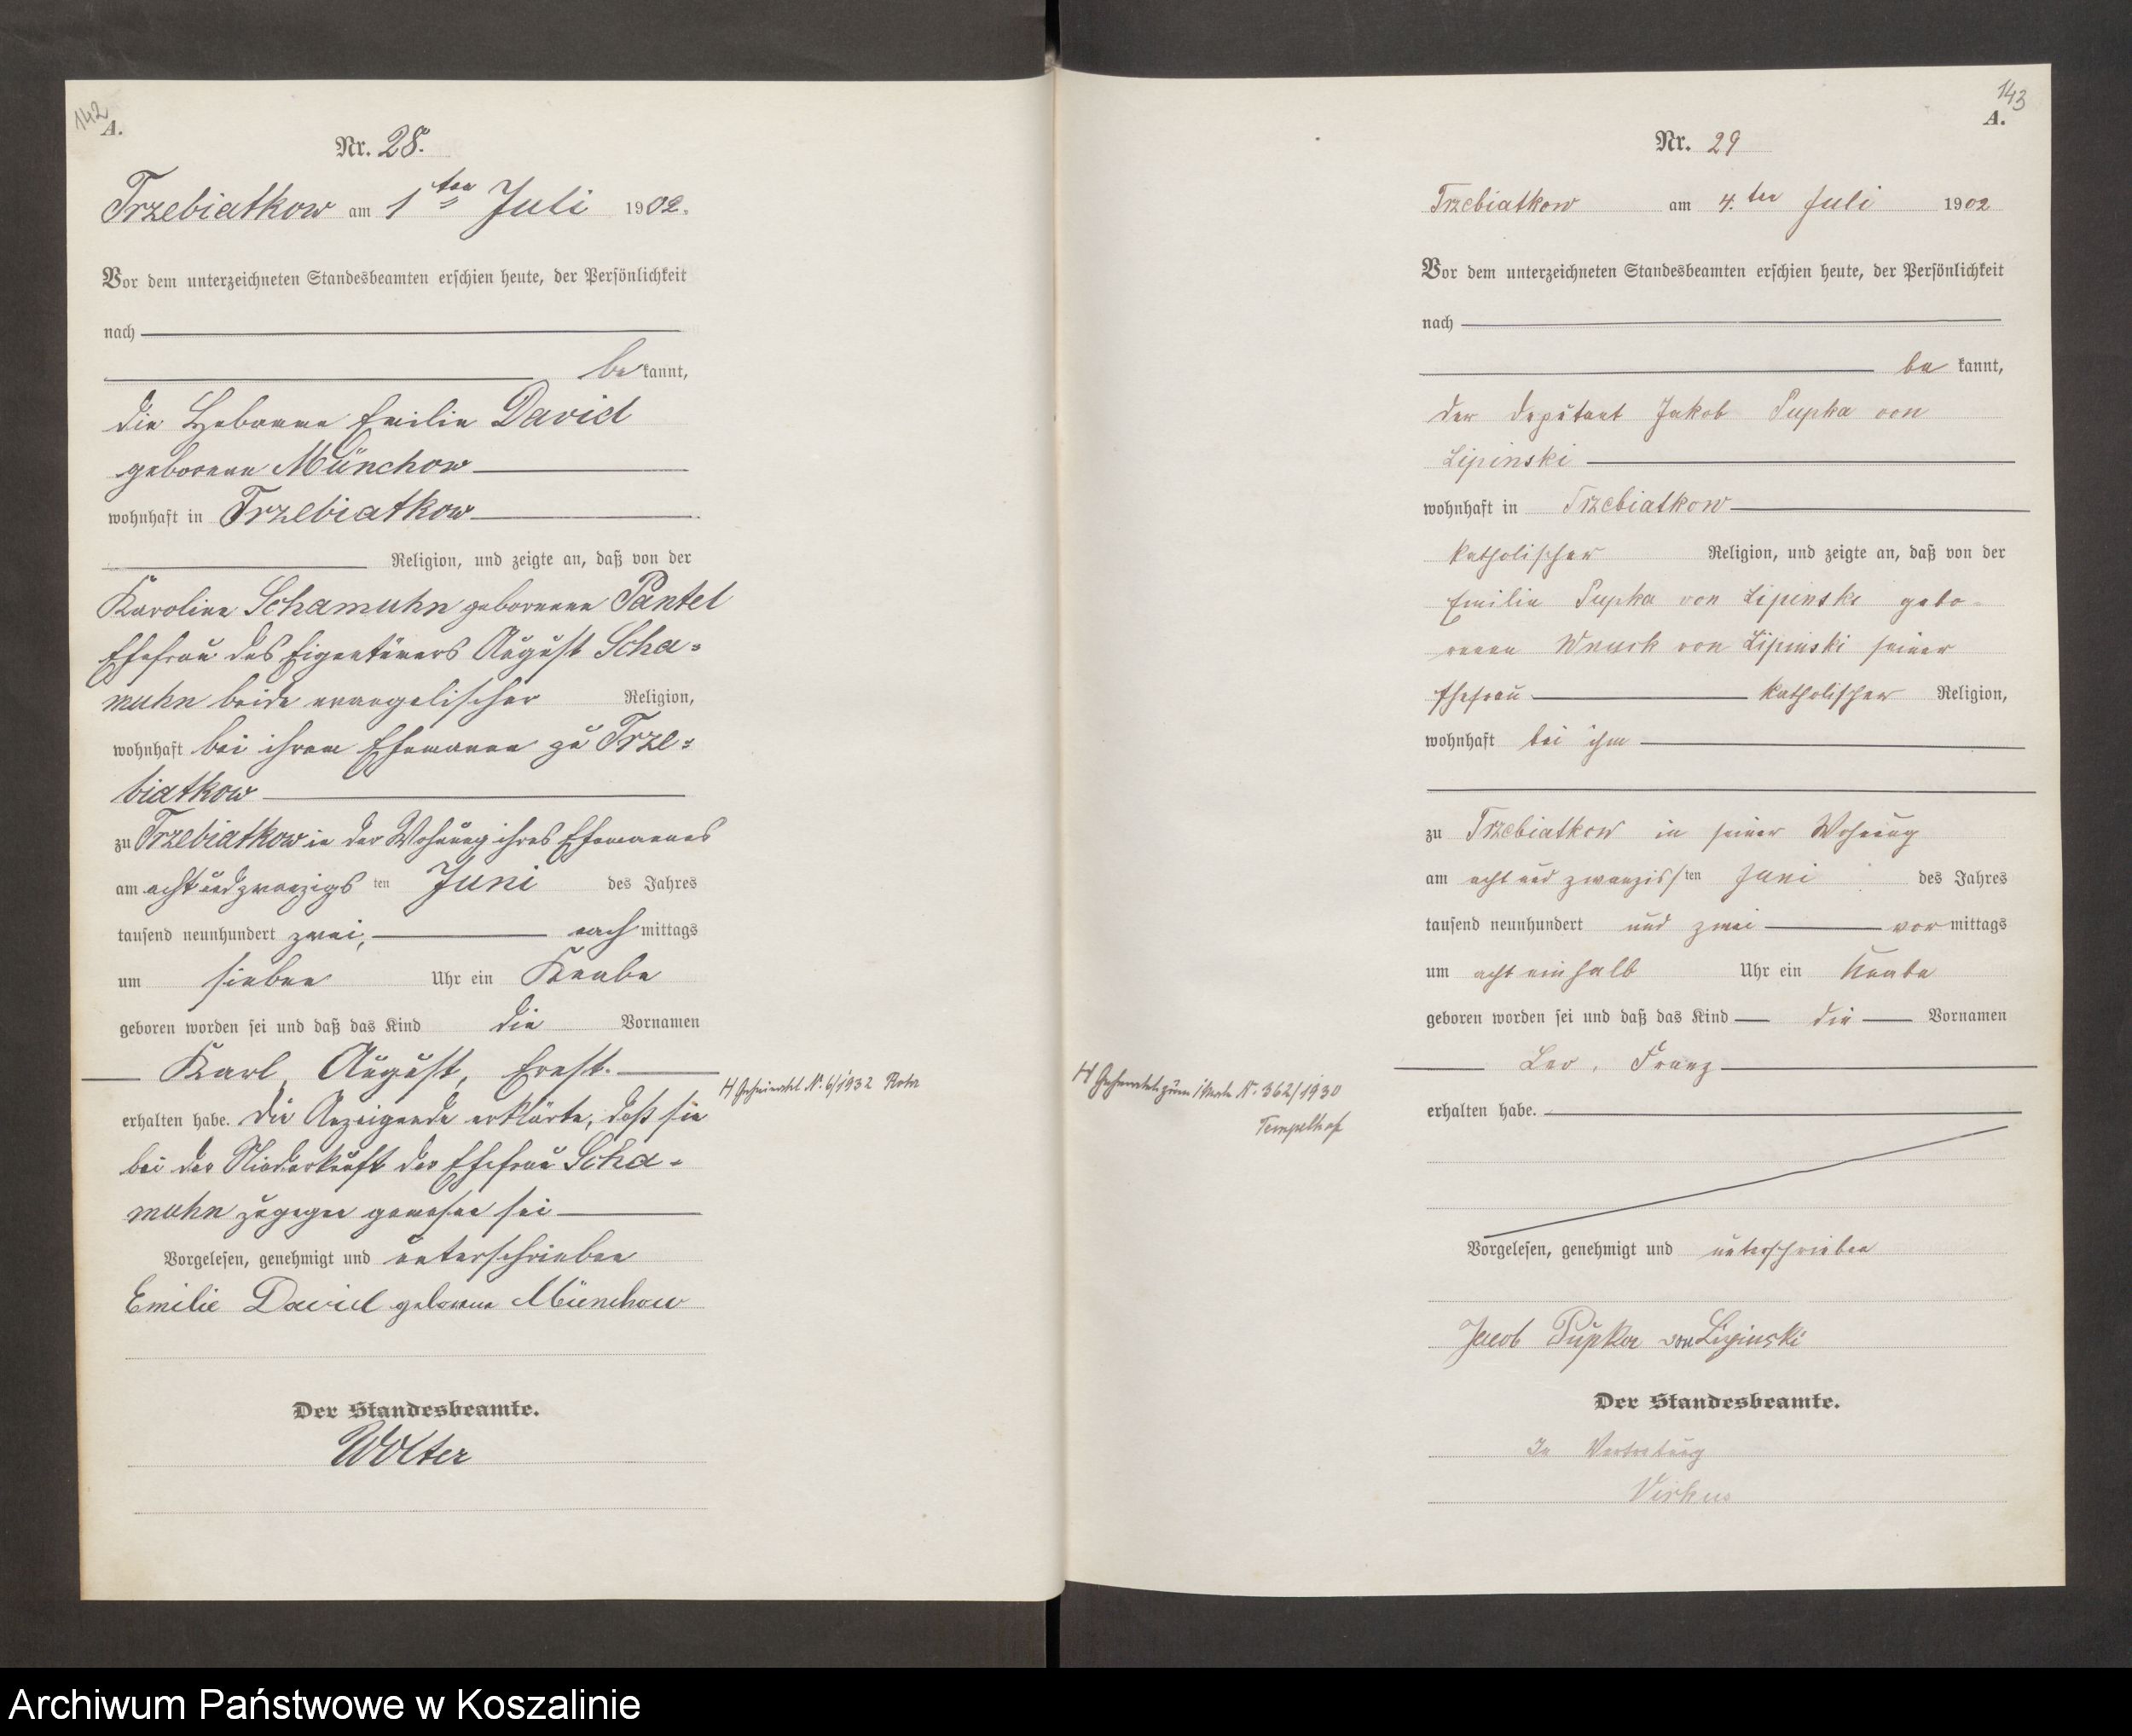 142
A.
Nr. 28.
Trzebiatkow am 1ten Juli 1902.
Vor dem unterzeichneten Standesbeamten erschien heute, der Persönlichkeit
nach
be kannt,
die Hebamme Emilie David
geborene Münchow
wohnhaft in Trzebiatkow
Religion, und zeigte an, daß von der
Karoline Schamuhn geborenen Pantel
Ehefrau des Eigentümers August Scha=
muhn beide evangelischer Religion,
wohnhaft bei ihrem Ehemanne zu Trze=
biatkow
zu Trzebiatkow in der Wohnung ihres Ehemannes
am acht und zwanzigs ten Juni des Jahres
tausend neunhundert zwei, nach mittags
um sieben Uhr ein Knabe
geboren worden sei und daß das Kind die Vornamen
Karl, August, Ernst.
H Geheiratet Nr. 6/1932
erhalten habe. Die Anzeigende erklärte, daß sie
bei der Niederkunft der Ehefrau Scha=
muhn zugegen gewesen sei
Vorgelesen, genehmigt und unterschrieben
Emilie David geborene Münchow
Der Standesbeamte.
Wolter
143
A.
Nr. 29
Trzebiatkow am 4.ten Juli 1902
Vor dem unterzeichneten Standesbeamten erschien heute, der Persönlichkeit
nach
be kannt,
der Deputant Jakob Pupka von
Lipinski
wohnhaft in Trzebiatkow
katholischer Religion, und zeigte an, daß von der
Emilie Pupka von Lipinski gebo-
renen Wnuck von Lipinski seiner
Ehefrau katholischer Religion,
wohnhaft bei ihm
zu Trzebiatkow in seiner Wohnung
am acht und zwanzigs ten Juni des Jahres
tausend neunhundert und zwei vor mittags
um acht einhalb Uhr ein Knabe
geboren worden sei und daß das Kind die Vornamen
Leo, Franz
H Nr. 362/1930
Tempelhof
erhalten habe.
Vorgelesen, genehmigt und unterschrieben
Jacob Pupka von Lipinski
Der Standesbeamte.
In Vertretung
Virkus
Archiwum Państwowe w Koszalinie